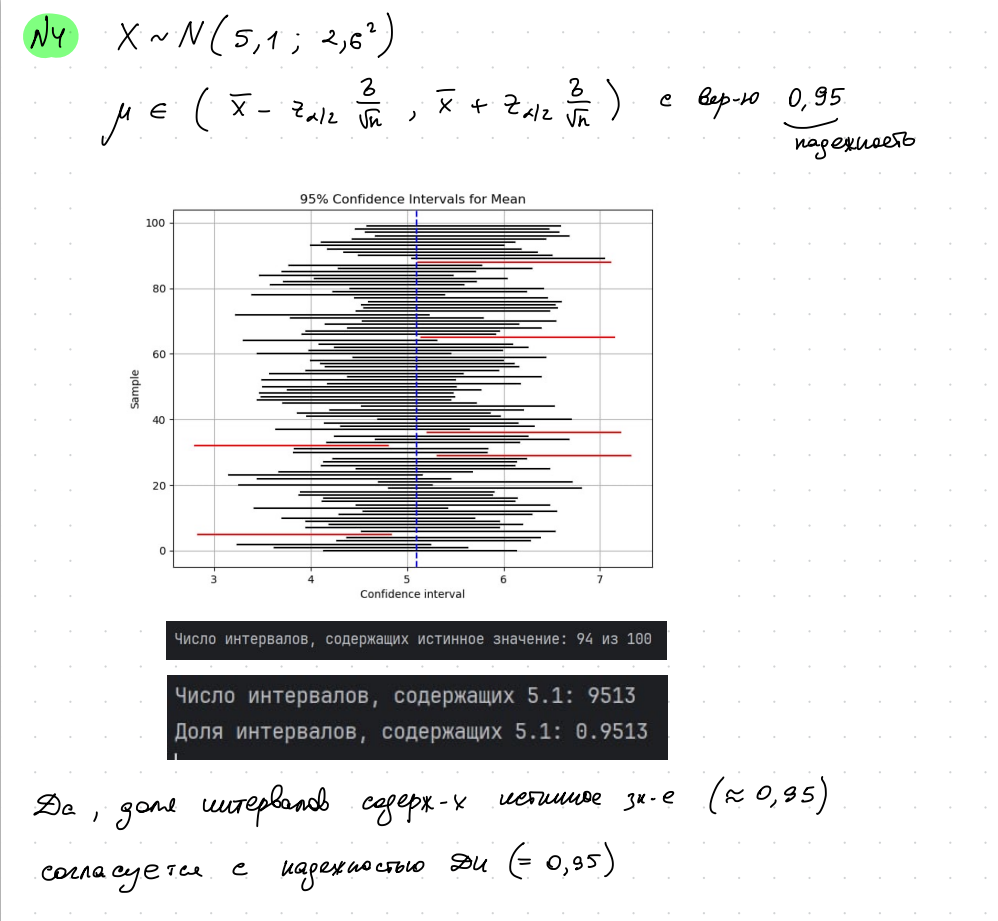 №4 X ~ N(5,1 ; 2,6²)
μ ∈ ( x̄ − z_{α/2} σ/√n , x̄ + z_{α/2} σ/√n ) с вер-ю 0,95
надежность
95% Confidence Intervals for Mean
100
80
60
40
20
0
Sample
3 4 5 6 7
Confidence interval
Число интервалов, содержащих истинное значение: 94 из 100
Число интервалов, содержащих 5.1: 9513
Доля интервалов, содержащих 5.1: 0.9513
Да, доля интервалов содерж-х истинное зн-е (≈ 0,95)
согласуется с надежностью ДИ (= 0,95)